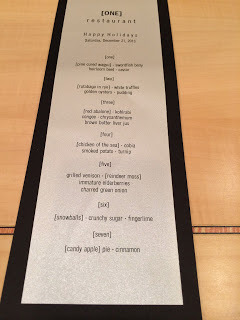 [ONE]
restaurant
Happy Holidays
Saturday, December 21, 2013
[one]
[pine coned wagyu] - swordfish belly
heirloom beet - caviar
[two]
[rutabaga in rye] - white truffles
golden oysters - pudding
[three]
[red abalone] - kohlrabi
congee - chrysanthemum
brown butter liver jus
[four]
[chicken of the sea] - cobia
smoked potato - turnip
[five]
grilled venison - [reindeer moss]
immature elderberries
charred green onion
[six]
[snowballs] - crunchy sugar - fingerlime
[seven]
[candy apple] pie - cinnamon